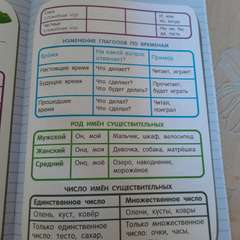 ИЗМЕНЕНИЕ ГЛАГОЛОВ ПО ВРЕМЕНАМ
Время На какой вопрос отвечает? Пример
Настоящее время Что делает? Читает, играет
Будущее время Что сделает? Что будет делать? Прочитает, будет играть
Прошедшее время Что делал? Читал, поиграл
РОД ИМЁН СУЩЕСТВИТЕЛЬНЫХ
Мужской Он, мой Мальчик, шкаф, велосипед
Женский Она, моя Девочка, собака, матрёшка
Средний Оно, моё Озеро, наводнение, мороженое
ЧИСЛО ИМЁН СУЩЕСТВИТЕЛЬНЫХ
Единственное число Множественное число
Олень, куст, ковёр Олени, кусты, ковры
Только единственное число: тесто, сахар, Только множественное число: очки, часы,